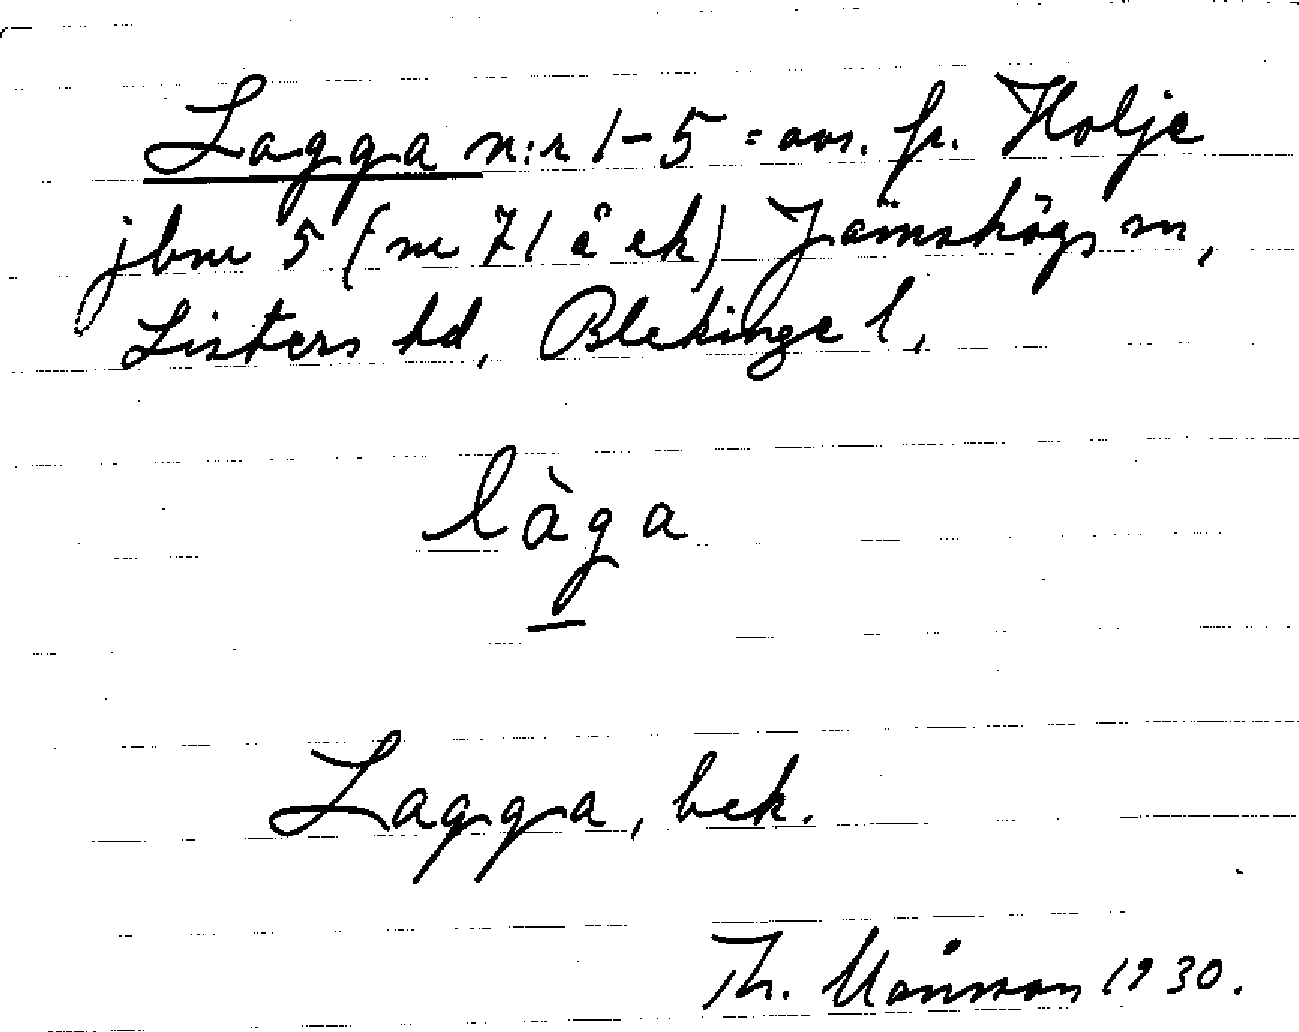 Lagga n:r 1-5 = avs. fr. Holje
jbnr 5 (nr 71 å ek) Jämshögs sn,
Listers hd, Blekinge l,
làga
Lagga, bek.
Th. Månsson 1930.